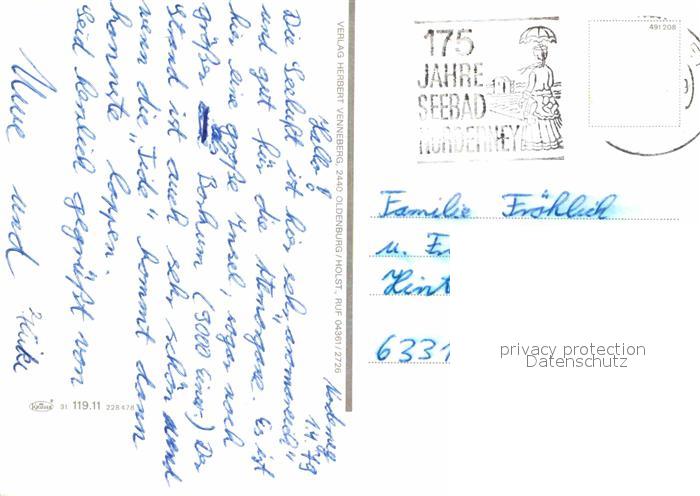 Norderney
1.4.79
Hallo!
Die Seeluft ist hier sehr „aromareich“
und gut für die Atmorgane. Es ist
hier eine große Insel, sogar noch
größer Borkum (9000 Einw.) Der
Strand ist auch sehr schön und
wenn die „Tide“ kommt dann
konnste hoppen.
Seid herzlich gegrüßt von
und
VERLAG HERBERT VENNEBERG, 2440 OLDENBURG/HOLST, RUF 04361/2726
Krüger 31 119.11 228478
175
JAHRE
SEEBAD
NORDERNEY
491208
Familie Fröhlich
u. 
Hint
6331
privacy protection
Datenschutz